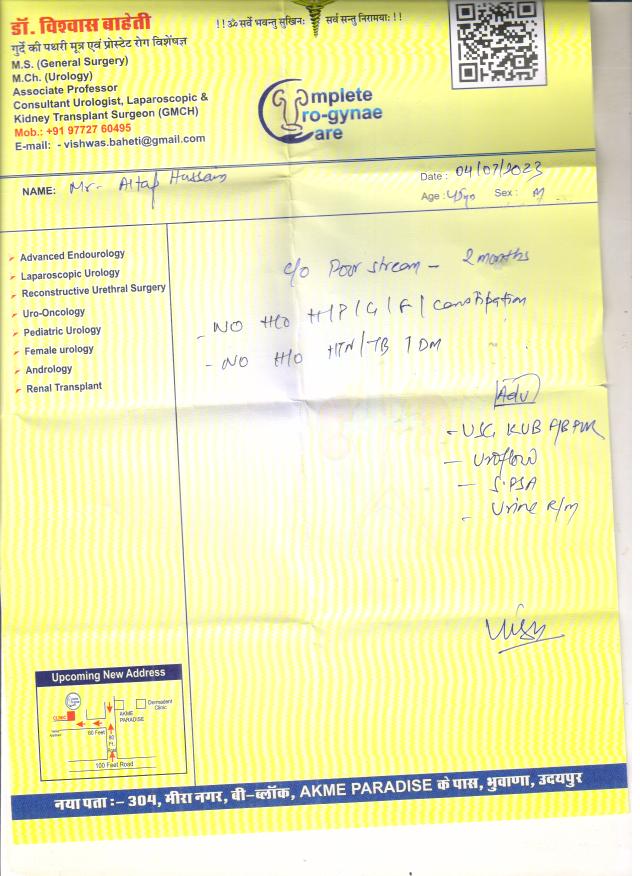 डॉ. विश्वास बाहेती
गुर्दे की पथरी मूत्र एवं प्रोस्टेट रोग विशेषज्ञ
M.S. (General Surgery)
M.Ch. (Urology)
Associate Professor
Consultant Urologist, Laparoscopic &
Kidney Transplant Surgeon (GMCH)
Mob.: +91 97727 60495
E-mail: - vishwas.baheti@gmail.com
!!ॐ सर्वे भवन्तु सुखिनः सर्व सन्तु निरामयः!!
Complete
Uro-gynae
Care
NAME: Mr- Altaf Hussain
Date : 04/07/2023
Age : 45yo Sex : M
Advanced Endourology
Laparoscopic Urology
Reconstructive Urethral Surgery
Uro-Oncology
Pediatric Urology
Female urology
Andrology
Renal Transplant
c/o Poor stream - 2 months
- NO H/o H/P/G/F/constipation
- NO H/o HTN/TB/DM
Adv
- USG KUB
- Uroflow
- S.PSA
- Urine R/M
Upcoming New Address
CLINIC
AKME
PARADISE
Dermadent
Clinic
60 Feet
60
Ft.
100 Feet Road
नया पता :- 304, मीरा नगर, बी-ब्लॉक, AKME PARADISE के पास, भुवाणा, उदयपुर